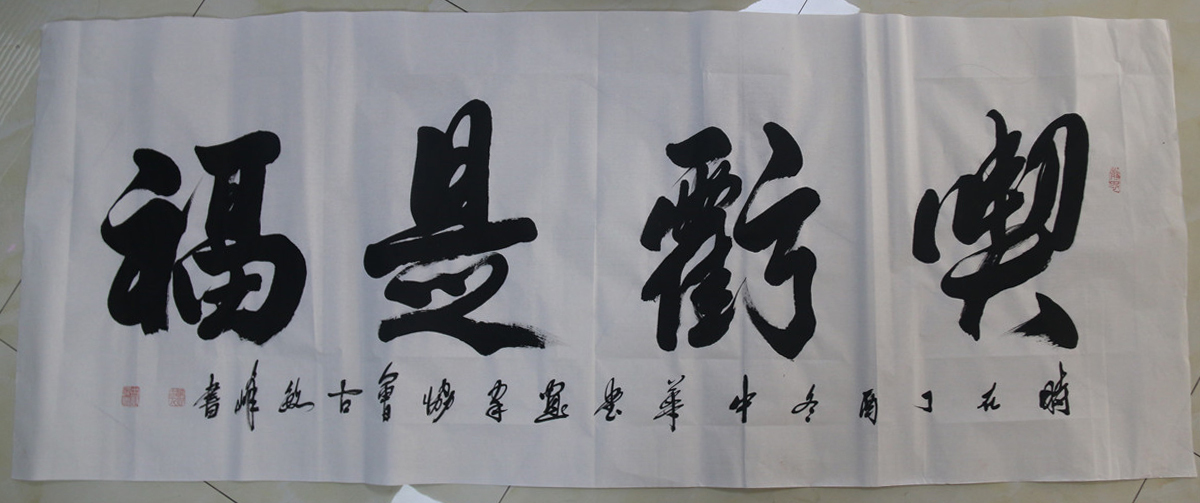 喫虧是福
時在丁酉冬中華書畫家協會古峰書